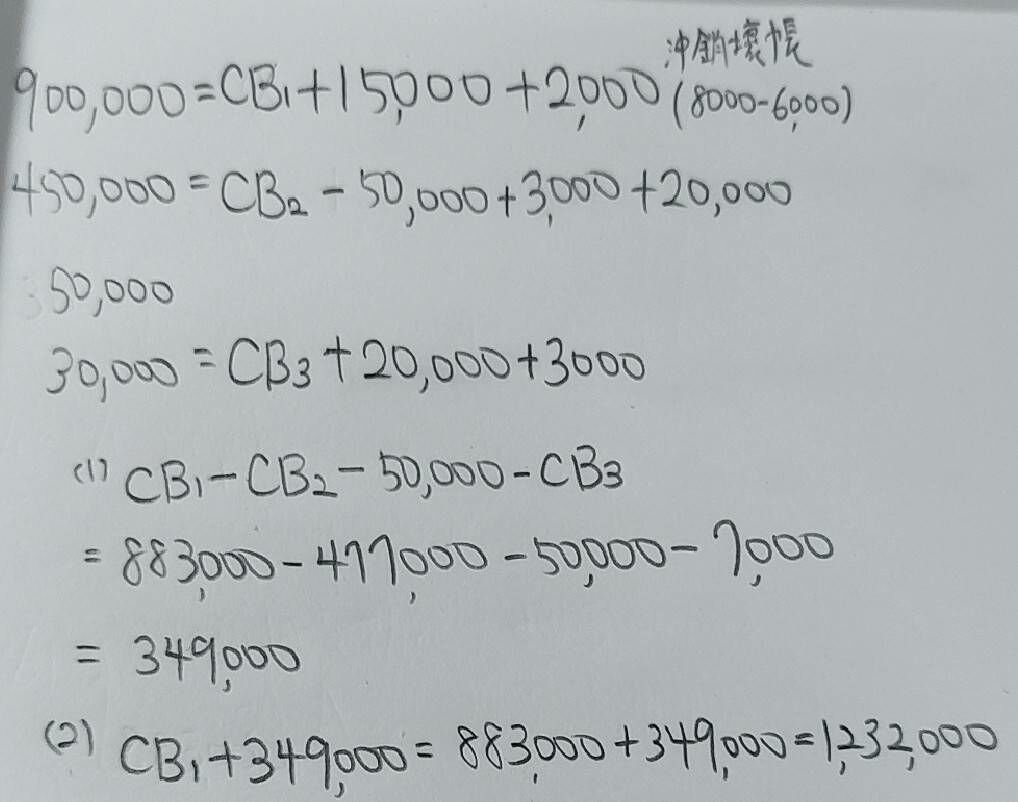 沖銷壞帳
900,000=CB₁+15,000+2,000(8000-6,000)
450,000=CB₂-50,000+3,000+20,000
50,000
30,000=CB₃+20,000+3000
(1) CB₁-CB₂-50,000-CB₃
=883,000-477,000-50,000-7,000
=349,000
(2) CB₁+349,000=883,000+349,000=1,232,000